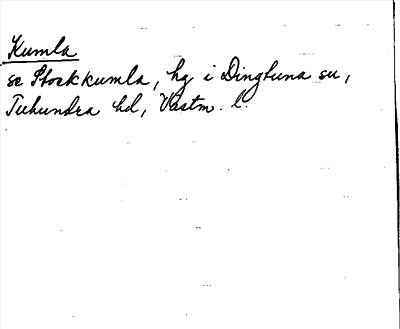 Kumla
se Stockkumla, hg i Dingtuna sn,
Tuhundra hd, Västm. l.